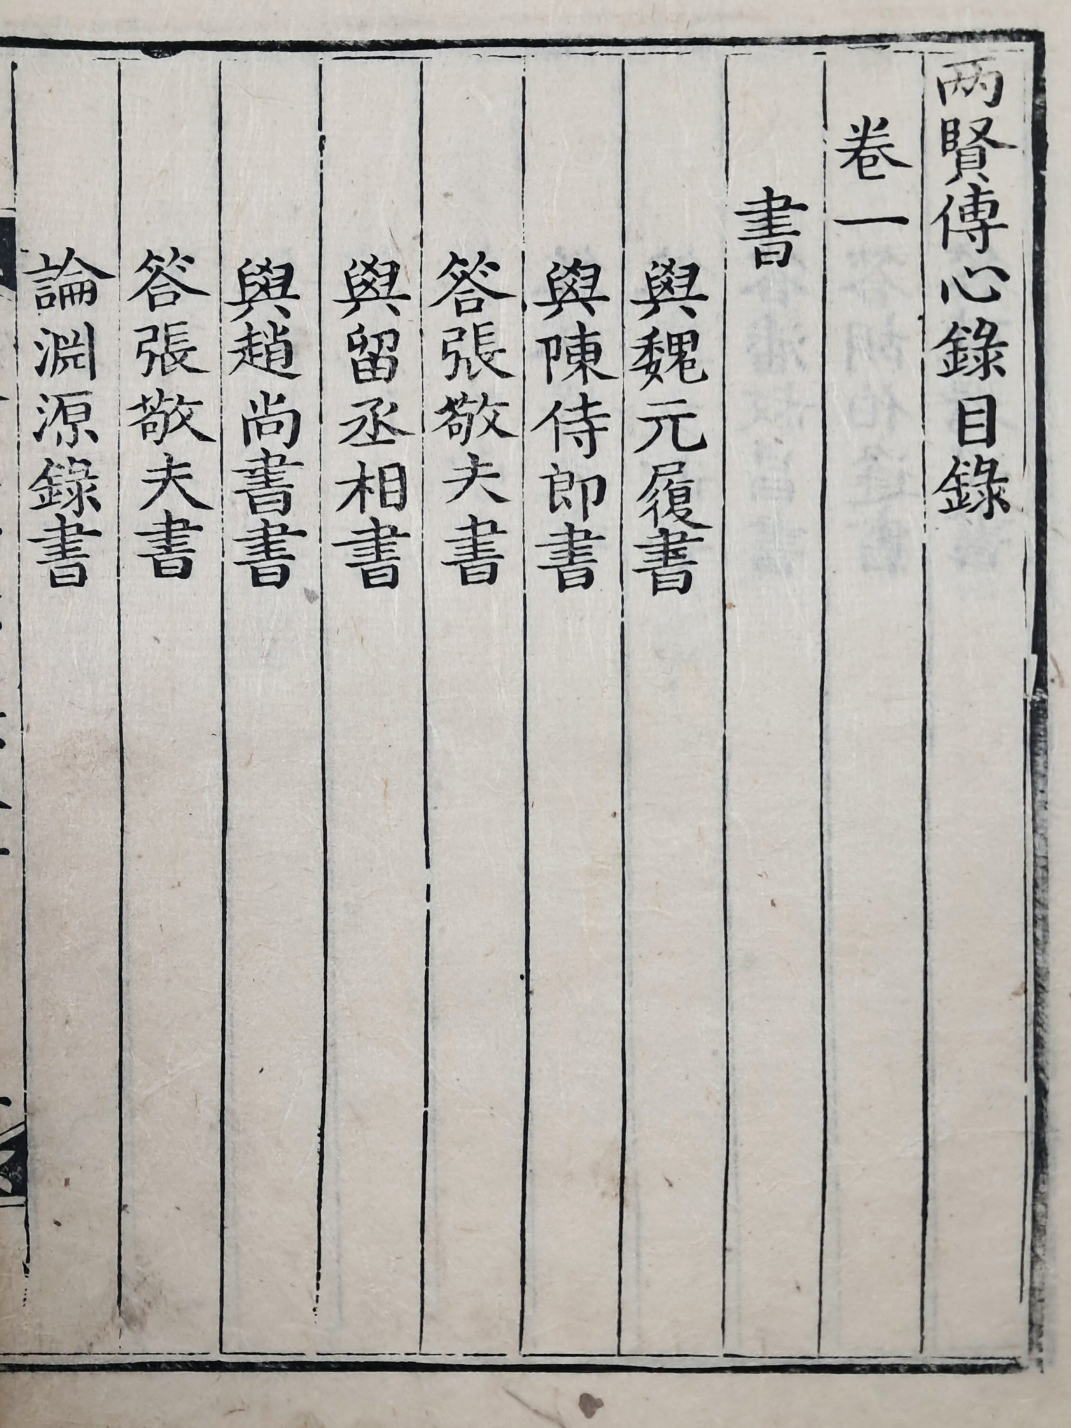 两賢傳心錄目錄
卷一
書
與魏元履書
與陳侍郎書
答張敬夫書
與留丞相書
與趙尚書書
答張敬夫書
論淵源錄書